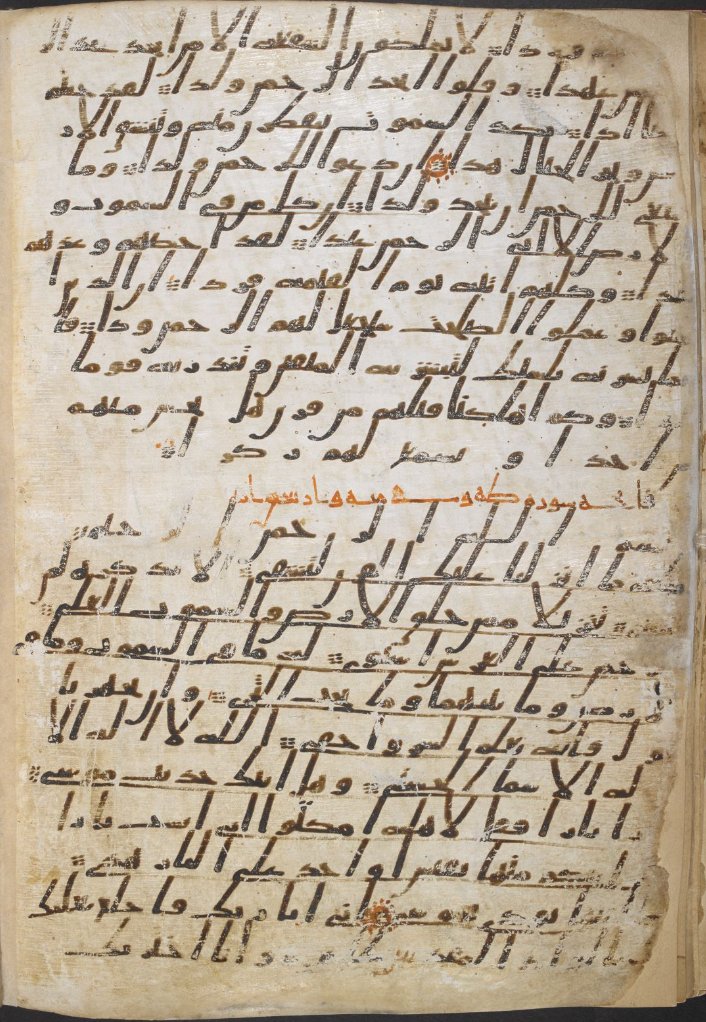 جهنم وردا لا يملكون الشفعة الا من اتخذ عند ا
لرحمن عهدا وقلوا اتخذ الرحمن ولدا لقد جئتم
شيا ادا تكد السموت يتفطرن منه وتنشق الار
ض وتخر الجبال هدا ان دعوا للرحمن ولدا وما
ينبغي للرحمن ان يتخذ ولدا ان كل من في السموت و
الارض الا اتي الرحمن عبدا لقد احصيهم وعدهم
عدا وكلهم اتيه يوم القيمة فردا ان الذين ا
منوا وعملوا الصلحت سيجعل لهم الرحمن ودا فا
نما يسرنه بلسنك لتبشر به المتقين وتنذر به قوما
لدا وكم اهلكنا قبلهم من قرن هل تحس منهم
من احد او تسمع لهم ركزا
فاتحه سوره طه وهي ميه
بسم الله الرحمن الرحيم
طه ما انزلنا عليك القرن لتشقى الا تذكرة لم
ن يخشى تنزيلا ممن خلق الارض والسموت العلى
الرحمن على العرش استوى له ما في السموت وما في
الارض وما بينهما وما تحت الثرى وان تجهر با
لقول فانه يعلم السر واخفى الله لا اله الا
هو له الاسما الحسنى وهل اتيك حديث موسى
اذ را نارا فقل لاهله امكثوا اني انست نارا
لعلي اتيكم منها بقبس او اجد على النار هدى
فلما اتيها نودي يموسى اني انا ربك فاخلع نعليك
انك بالواد المقدس طوى وانا اخترتك